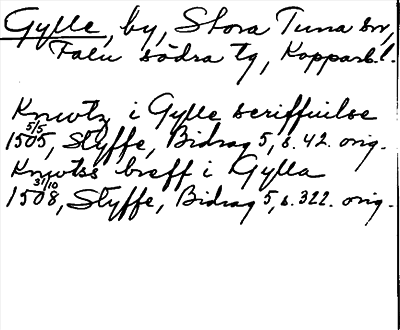 Gylle, by, Stora Tuna sn,
Falu södra tg, Kopparb. l.
Knwtz i Gylle scriffuilse
1505 5/5, Styffe, Bidrag 5, s. 42. orig.
Knwtss breff i Gylla
1508 31/10, Styffe, Bidrag 5, s. 322. orig.